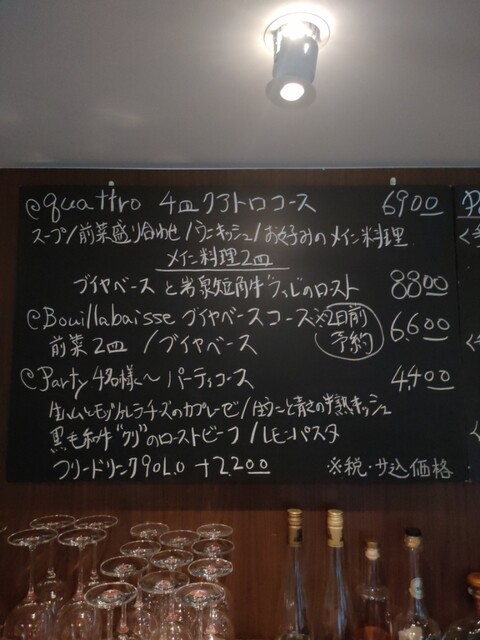 @quattro 4皿クアトロコース 6900
スープ/前菜盛り合わせ/ウニキッシュ/お好みのメイン料理
メイン料理2皿
ブイヤベースと岩泉短角牛"フィレ"のロースト 8800
@Bouillabaisse ブイヤベースコース ※2日前予約 6,600
前菜2皿 /ブイヤベース
@Party 4名様〜 パーティコース 4,400
生ハムとモッツァレラチーズのカプレーゼ/生うにと青さの半熟キッシュ
黒毛和牛"クリ"のローストビーフ/レモンパスタ
フリードリンク90L.O +2,200 ※税・サ込価格